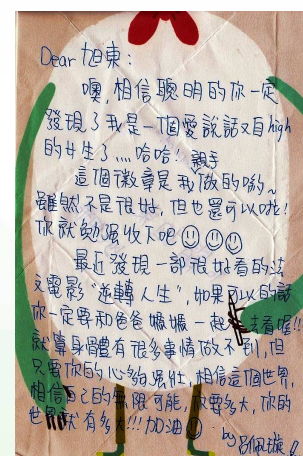 Dear 旭東：
噢，相信聰明的你一定
發現了我是一個愛說話又自high
的女生了....哈哈！
這個徽章是我親手做的喲～
雖然不是很好，但也還可以啦！
你就勉強收下吧☺☺☺
最近發現一部很好看的法
文電影"逆轉人生"，如果可以的話
你一定要和爸爸媽媽一起去看喔!!
就算身體有很多事情做不到，但
只要你的心夠強壯，相信這個世界，
相信自己的無限可能，你要多大，你的
世界就有多大!!!加油☺
by 呂佩璇